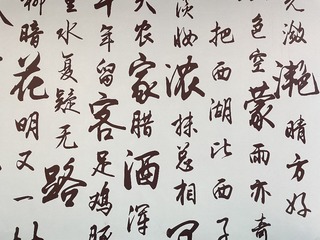 光潋滟晴方好
色空蒙雨亦奇
把西湖比西子
淡妆浓抹总相
农家腊酒浑
年留客足鸡豚
重水复疑无路
柳暗花明又一